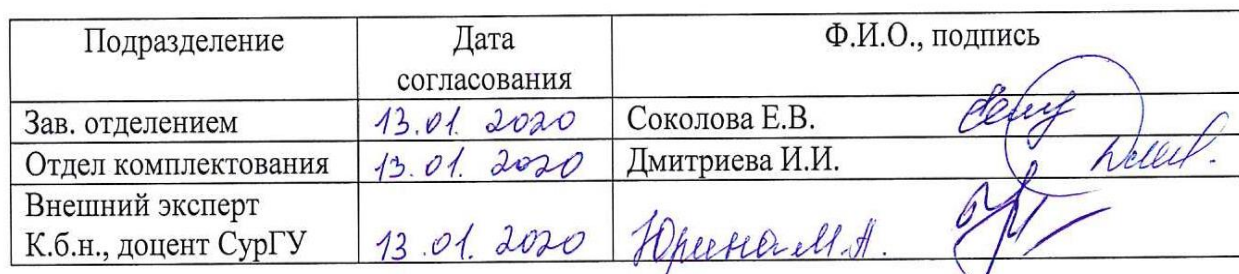 Подразделение Дата согласования Ф.И.О., подпись
Зав. отделением 13.01.2020 Соколова Е.В.
Отдел комплектования 13.01.2020 Дмитриева И.И.
Внешний эксперт
К.б.н., доцент СурГУ 13.01.2020 Юрина М.А.